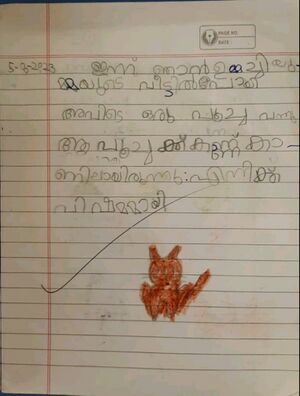 PAGE NO.
DATE
5-8-2023 ഇന്ന് ഞാൻ ഉമ്മച്ചിയു-
മ്മയുടെ വീട്ടിൽ പോയി
അവിടെ ഒരു പൂച്ച വന്നു
ആ പൂച്ചക്ക് കണ്ണ് കാ-
ണില്ലായിരുന്നു. എനിക്ക്
വിഷമമായി